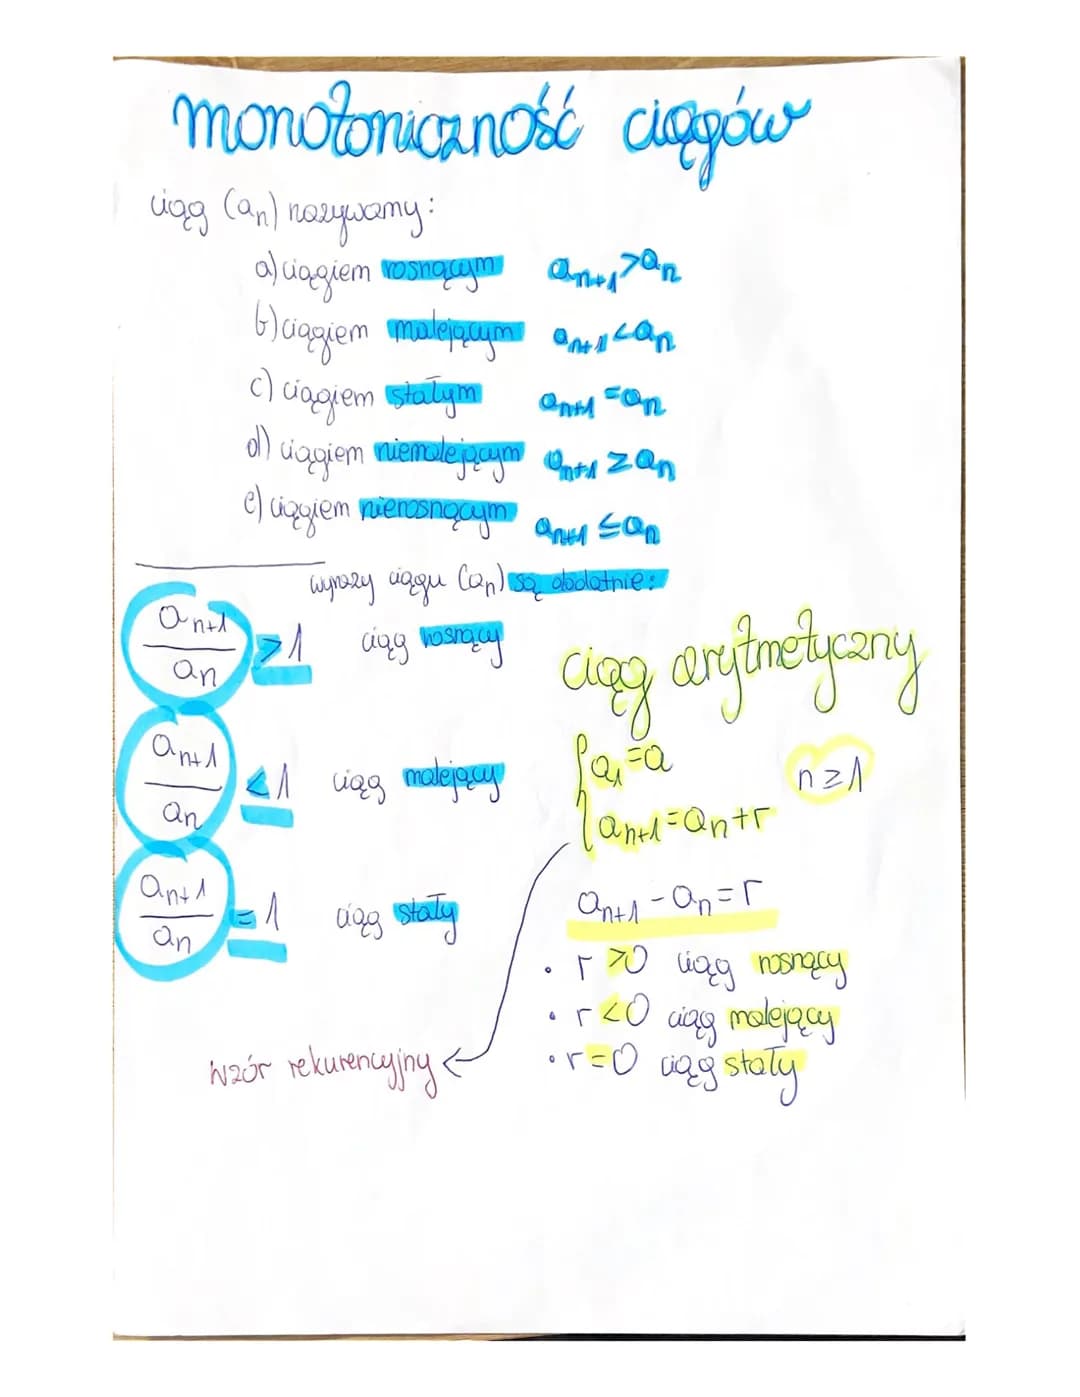 monotoniczność ciągów
ciąg (aₙ) nazywamy:
a) ciągiem rosnącym aₙ₊₁>aₙ
b) ciągiem malejącym aₙ₊₁<aₙ
c) ciągiem stałym aₙ₊₁=aₙ
d) ciągiem niemalejącym aₙ₊₁≥aₙ
e) ciągiem nierosnącym aₙ₊₁≤aₙ
wyrazy ciągu (aₙ) są dodatnie:
aₙ₊₁/aₙ >1 ciąg rosnący
aₙ₊₁/aₙ <1 ciąg malejący
aₙ₊₁/aₙ =1 ciąg stały
ciąg arytmetyczny
{a₁=a
aₙ₊₁=aₙ+r n≥1
aₙ₊₁-aₙ=r
• r >0 ciąg rosnący
• r <0 ciąg malejący
• r=0 ciąg stały
wzór rekurencyjny